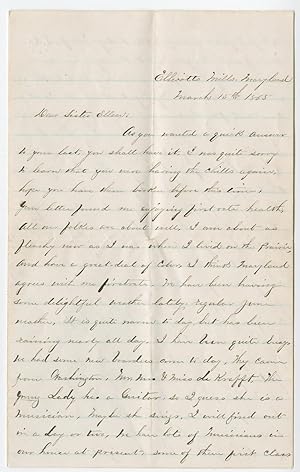 Ellicotts Mills, Maryland
March 15th 1865
Dear Sister Ellen:
As you wanted a quick answer
to your last, you shall have it. I was quite sorry
to learn that you were having the chills again,
hope you have them broken before this time.
Your letter found me enjoying first rate health.
All our folks are about well. I am about as
fleshy now as I was when I lived on the Prairie
and have a great deal of color, I think Maryland
agrees with me first rate. We have been having
some delightful weather lately, regular June
weather, it is quite warm to day, but has been
raining nearly all day. I have been quite busy.
We had some new boarders come to day. They came
from Washington, Mr. Mrs & Miss de Krafft. The
young Lady has a Guitar, so I guess she is a
musician, maybe she sings, I will find out
in a day or two, we have lots of musicians in
our house at present, some of them first class